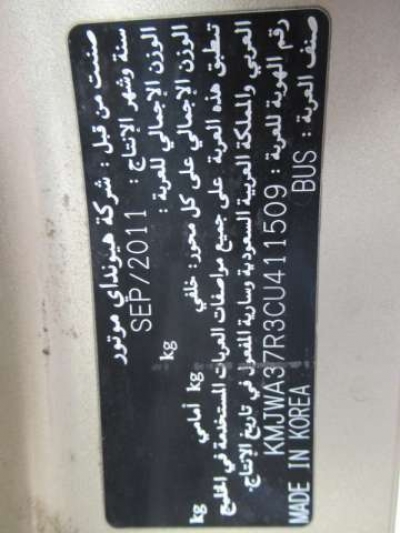 صنعت من قبل : شركة هيونداي موتور
سنة وشهر الإنتاج : SEP/2011
الوزن الإجمالي للعربة : kg
الوزن الإجمالي على كل محور: خلفي kg أمامي kg
تنطبق هذه العربة على جميع مواصفات العربات المستخدمة في الخليج
العربي والمملكة العربية السعودية وسارية المفعول في تاريخ الإنتاج.
رقم الهوية للعربة : KMJWA37R3CU411509
صنف العربة : BUS MADE IN KOREA